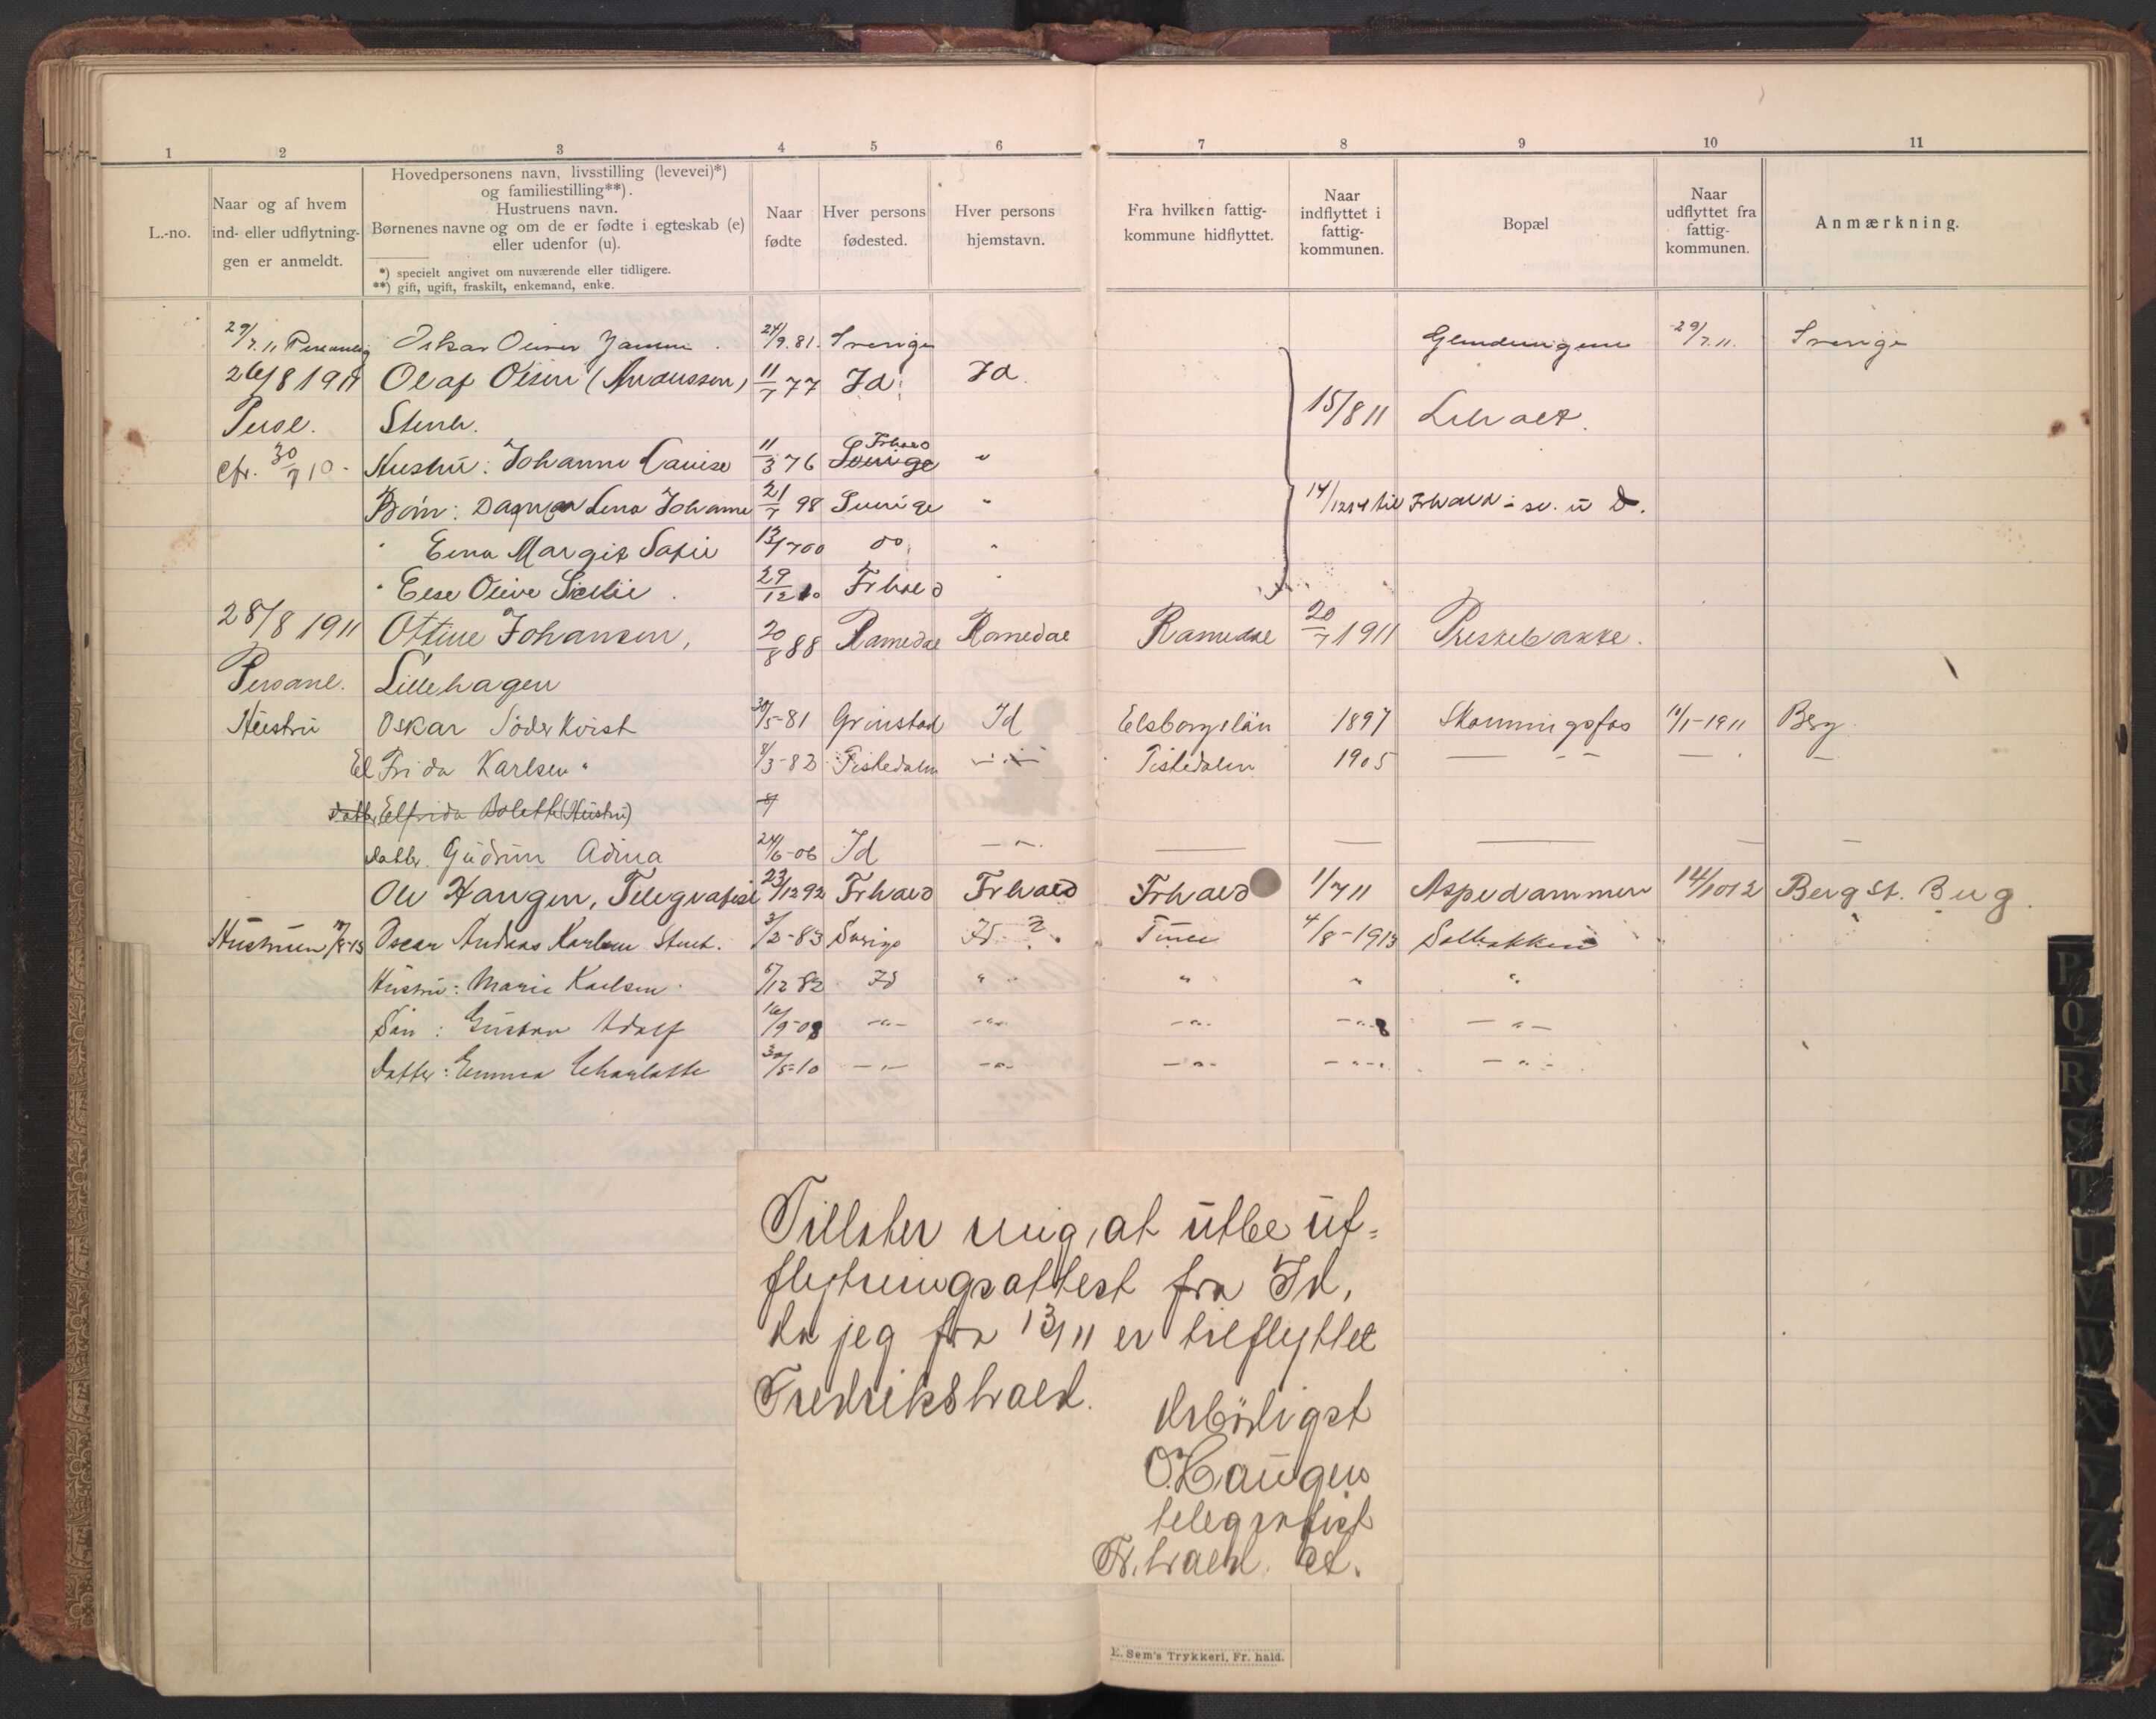 1 2 3 4 5 6 7 8 9 10 11
L.-no.
Naar og af hvem
ind- eller udflytnin-
gen er anmeldt.
Hovedpersonens navn, livsstilling (levevei)*)
og familiestilling**).
Hustruens navn.
Børnenes navne og om de er fødte i egteskab (e)
eller udenfor (u).
*) specielt angivet om nuværende eller tidligere.
**) gift, ugift, fraskilt, enkemand, enke.
Naar
fødte
Hver persons
fødested.
Hver persons
hjemstavn.
Fra hvilken fattig-
kommune hidflyttet.
Naar
indflyttet i
fattig-
kommunen.
Bopæl
Naar
udflyttet fra
fattig-
kommunen.
Anmærkning.
29/7.11 Personlig Oskar 24/9.81. Sverige 29/7.11. Sverige
26/8 1911 Olaf Olsen (Andersson) 11/7 77 Id. Id.
Persl. Stenh. 15/8 11
Cfr. 30/7 10 - Hustru: Johanne Lovise 11/3 76 Sverige Frhald "
Børn: Dagmar Lena Johanne 21/7 98 Sverige " 14/12 14 til Frhald
" Elna Margit Sofie 13/7 00 do "
" Else Olive 29/12 10 Frhald "
28/8 1911 Ottine Johansen, 20/8 88 Ramedal Ramedal Ramedal 20/7 1911 Prestebakke.
Personl. Lillehagen
Hustru Oskar Söderkvist 30/5-81 Grinstad Id Elsborgslän 1897 11/1-1911 Berg
Elfrida Karlsen " 8/3-82 Tistedalen — " — Tistedalen 1905 — — — —
Datter Elfrida Bolette (Hustru) 8/
Datter Gudrun Adina 24/6-06 Id — " — — — — — —
Ole Haugen, Telegrafist 23/12 92 Frhald Frhald Frhald 1/7 11 Aspedammen 14/10 12 Berg st. Berg.
Hustruen /8-13 Oscar Andreas Karlsen Stenh. 3/2-83 Sverige Id ? 4/8-1913 Solbakken
Hustru: Marie Karlsen 5/12 82 Id " " " "
Søn: Gustav Adolf 16/9-08 — " — — " — — " — — " — — " —
Datter: Emma Charlotte 30/5-10 — " — — " — — " — — " — — " —
Tillater mig, at utbe ut=
flytningsattest fra Id,
da jeg fra 13/11 er tilflyttet
Fredrikshald.
Ærbødigst
O. Haugen
telegrafist
Fr.hald st.
E. Sem's Trykkeri, Fr. hald.
P
Q
R
S
T
U
V
W
X
Y
Z